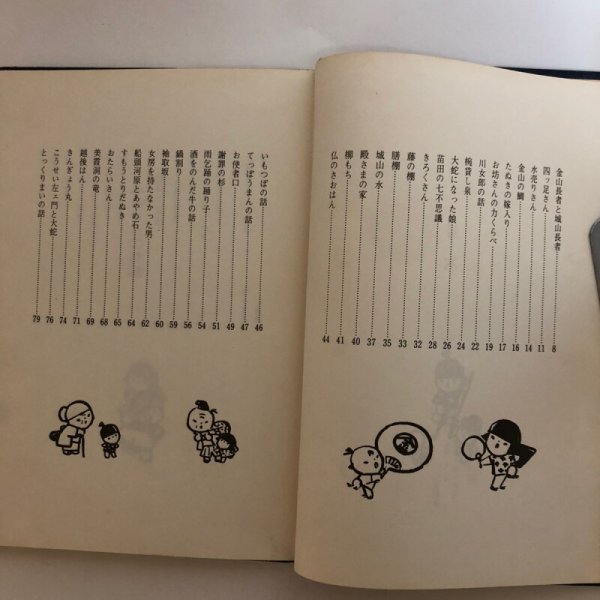 金山長者と城山長者………8
四ッ足さん………11
水売りさん………14
金山の鯛………16
たぬきの嫁入り………17
お坊さんの力くらべ………19
川女郎の話………22
椀貸し泉………24
大蛇になった娘………26
苗田の七不思議………28
きろくさん………32
藤の棚………33
膳棚………35
城山の水………37
殿さまの家………40
柳もち………41
仏のさおはん………44
いもつぼの話………46
てっぽうまんの話………47
お使者口………49
謝罪の杉………51
雨乞踊の踊り子………54
酒をのんだ牛の話………56
鍋割り………59
袖取坂………60
女房を持たなかった男………62
船頭河原とあやめ石………64
すもうとりだぬき………65
おたらいさん………68
美霞洞の竜………69
越後はん………71
きんぎょう丸………74
こうせい左ェ門と大蛇………76
とっくりまいの話………79